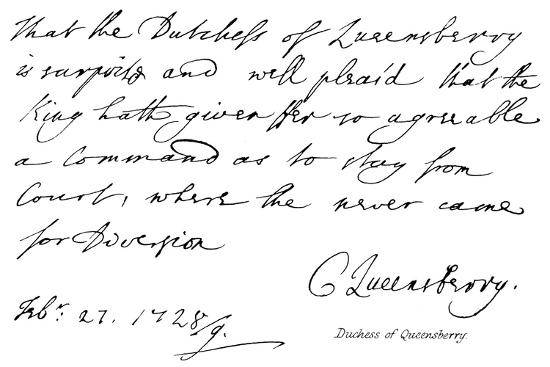 That the Dutchess of Queensberry
is surpris'd and well pleas'd that the
King hath given Her so agreeable
a Command as to stay from
Court, where she never came
for Diversion
C Queensberry.
Febr. 27. 1728/9.
Duchess of Queensberry.